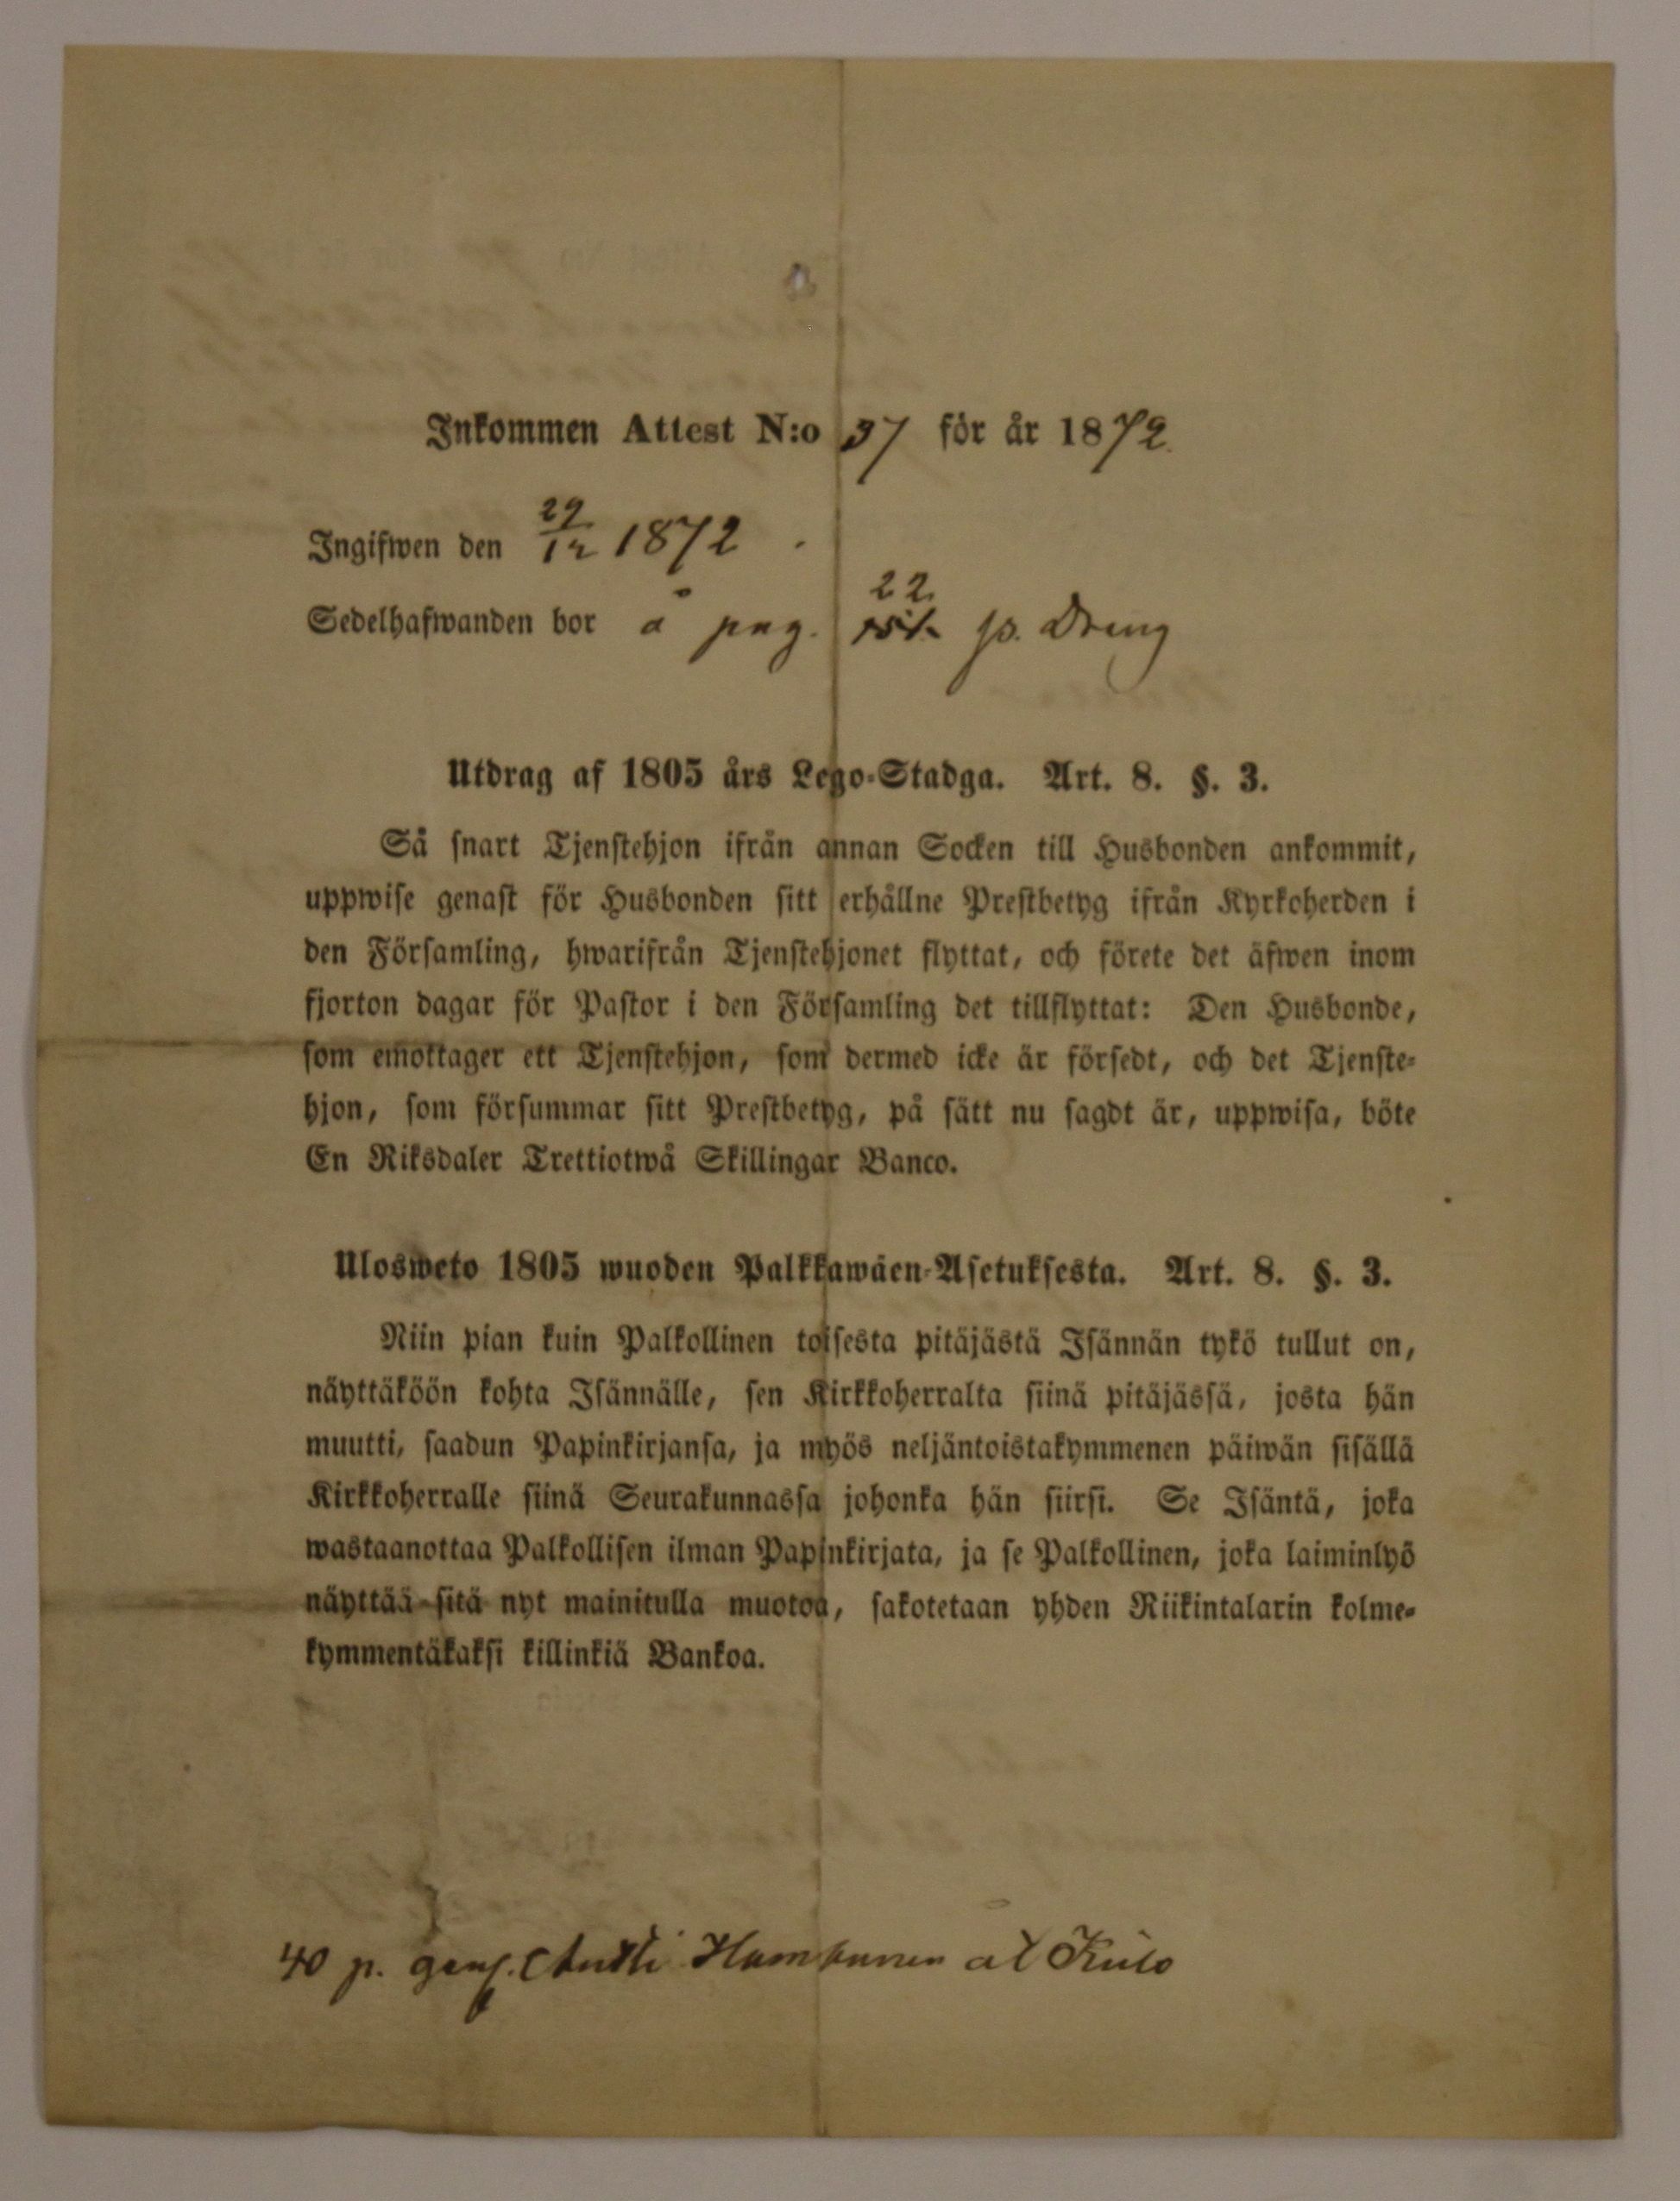 Inkommen Attest N:o 37 för år 1872.
Ingifwen den 29/12 1872.
Sedelhafwanden bor å pag. 22 p. Dreng
Utdrag af 1805 års Lego-Stadga. Art. 8. §. 3.
Så snart Tjenstehjon ifrån annan Socken till Husbonden ankommit,
uppwise genast för Husbonden sitt erhållne Prestbetyg ifrån Kyrkoherden i
den Församling, hwarifrån Tjenstehjonet flyttat, och förete det äfwen inom
fjorton dagar för Pastor i den Församling det tillflyttat: Den Husbonde,
som emottager ett Tjenstehjon, som dermed icke är försedt, och det Tjenste-
hjon, som försummar sitt Prestbetyg, på sätt nu sagdt är, uppwisa, böte
En Riksdaler Trettiotwå Skillingar Banco.
Ulosweto 1805 wuoden Palkkawäen-Asetuksesta. Art. 8. §. 3.
Niin pian kuin Palkollinen toisesta pitäjästä Isännän tykö tullut on,
näyttäköön kohta Isännälle, sen Kirkkoherralta siinä pitäjässä, josta hän
muutti, saadun Papinkirjansa, ja myös neljäntoistakymmenen päiwän sisällä
Kirkkoherralle siinä Seurakunnassa johonka hän siirsi. Se Isäntä, joka
wastaanottaa Palkollisen ilman Papinkirjata, ja se Palkollinen, joka laiminlyö
näyttää sitä nyt mainitulla muotoa, sakotetaan yhden Riikintalarin kolme-
kymmentäkaksi killinkiä Bankoa.
40 p. Antti